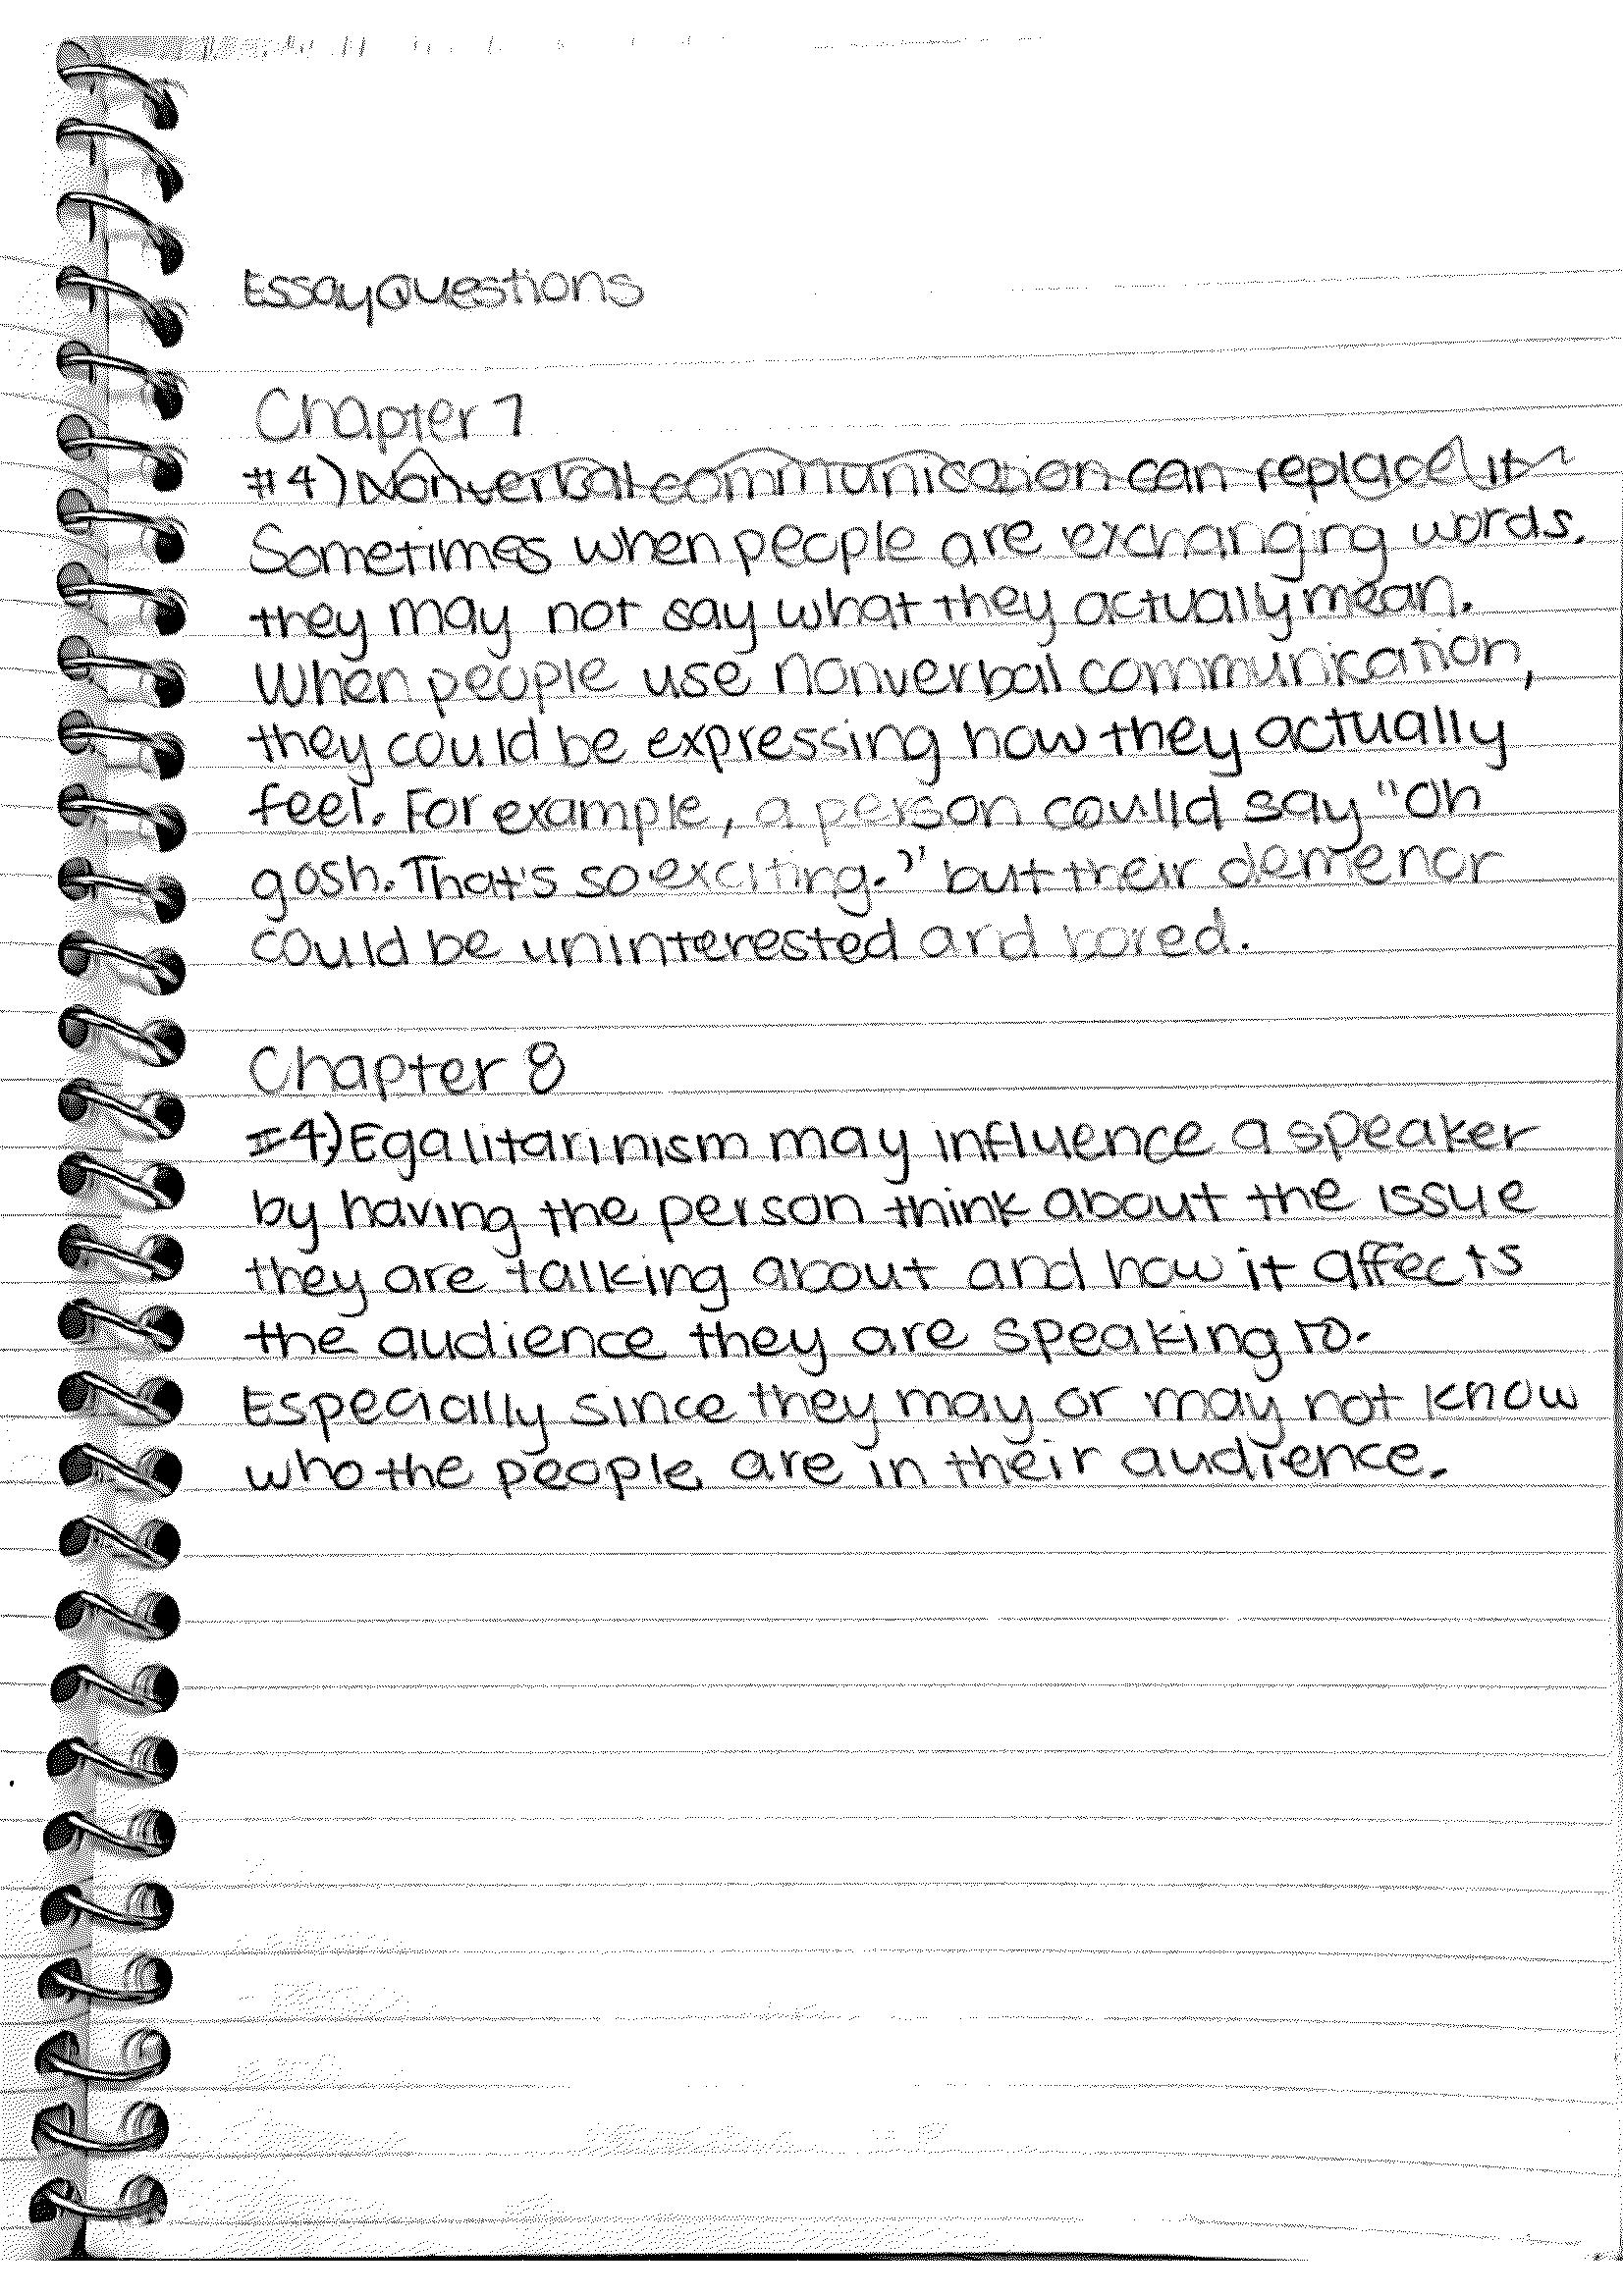 Essay Questions
Chapter 7
#4) Nonverbal communication can replace it
Sometimes when people are exchanging words.
they may not say what they actually mean.
When people use nonverbal communication,
they could be expressing how they actually
feel. For example, a person could say "Oh
gosh. That's so exciting." but their demenor
could be uninterested and bored.
Chapter 8
#4) Egalitarinism may influence a speaker
by having the person think about the issue
they are talking about and how it affects
the audience they are speaking to.
Especially since they may or may not know
who the people are in their audience.